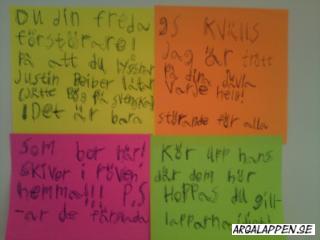 Du din freda
förstörare!
På att du lyssnar
Justin Beiber låtar
på svenska
! Det är bara
9S KVÄLLS
Jag är trött
på dina jävla
varje helg!
störande för alla
som bor här!
skivor i röven
hemma!!! P.S
-ar de färgada
Kör upp hans
där dem hör
HOPPAS du gill-
lapparna
ARGALAPPEN.SE